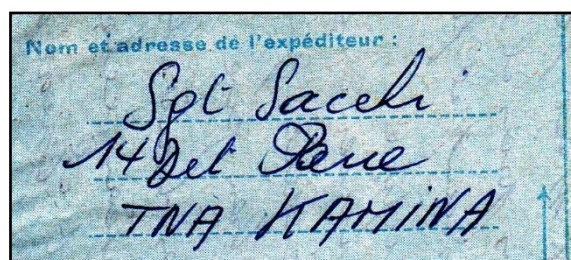 Nom et adresse de l'expéditeur :
Sgt Sacchi
14 Det
TNA KAMINA